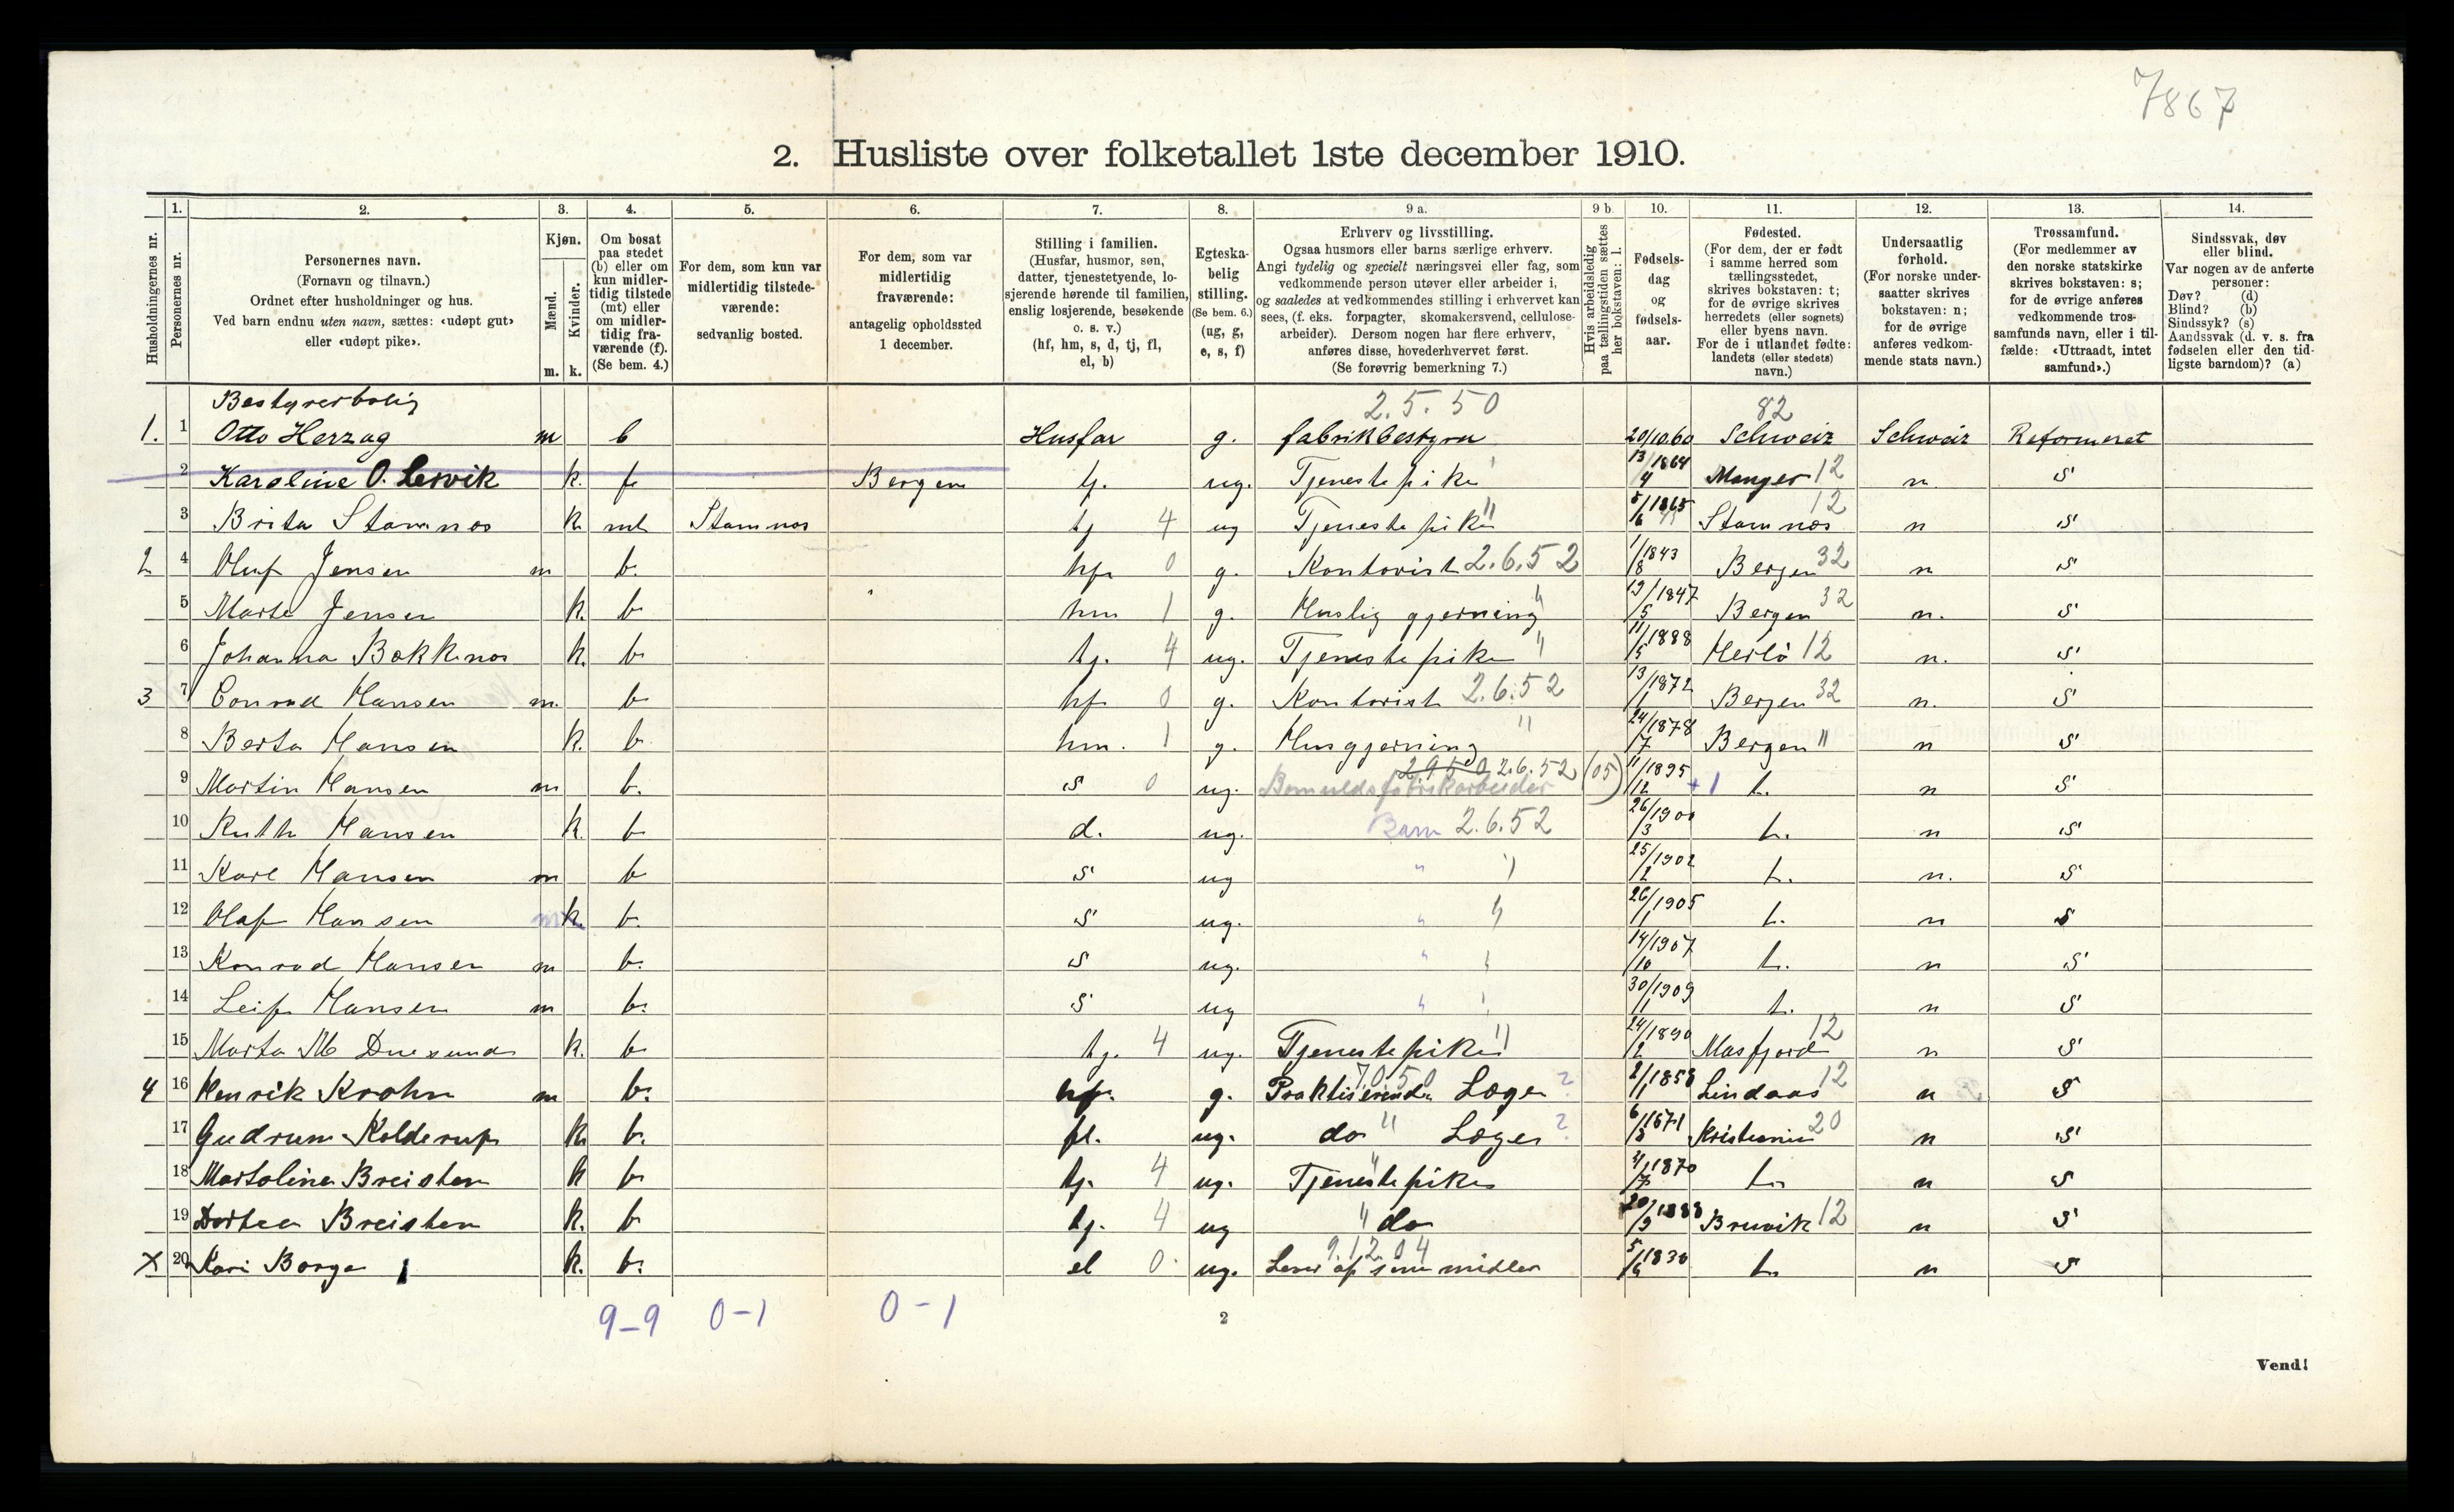 7867
2. Husliste over folketallet 1ste december 1910.
1. 2. 3. 4. 5. 6. 7. 8. 9 a. 9 b. 10. 11. 12. 13. 14.
Husholdningernes nr.
Personernes nr.
Personernes navn.
(Fornavn og tilnavn.)
Ordnet efter husholdninger og hus.
Ved barn endnu uten navn, sættes: «udøpt gut»
eller «udøpt pike».
Kjøn.
Mænd.
Kvinder.
m. k.
Om bosat
paa stedet
(b) eller om
kun midler-
tidig tilstede
(mt) eller
om midler-
tidig fra-
værende (f).
(Se bem. 4.)
For dem, som kun var
midlertidig tilstede-
værende:
sedvanlig bosted.
For dem, som var
midlertidig
fraværende:
antagelig opholdssted
1 december.
Stilling i familien.
(Husfar, husmor, søn,
datter, tjenestetyende, lo-
sjerende hørende til familien,
enslig losjerende, besøkende
o. s. v.)
(hf, hm, s, d, tj, fl,
el, b)
Egteska-
belig
stilling.
(Se bem. 6.)
(ug, g,
e, s, f)
Erhverv og livsstilling.
Ogsaa husmors eller barns særlige erhverv.
Angi tydelig og specielt næringsvei eller fag, som
vedkommende person utøver eller arbeider i,
og saaledes at vedkommendes stilling i erhvervet kan
sees, (f. eks. forpagter, skomakersvend, cellulose-
arbeider). Dersom nogen har flere erhverv,
anføres disse, hovederhvervet først.
(Se forøvrig bemerkning 7.)
Hvis arbeidsledig
paa tællingstiden sættes
her bokstaven: l.
Fødsels-
dag
og
fødsels-
aar.
Fødested.
(For dem, der er født
i samme herred som
tællingsstedet,
skrives bokstaven: t;
for de øvrige skrives
herredets (eller sognets)
eller byens navn.
For de i utlandet fødte:
landets (eller stedets)
navn.)
Undersaatlig
forhold.
(For norske under-
saatter skrives
bokstaven: n;
for de øvrige
anføres vedkom-
mende stats navn.)
Trossamfund.
(For medlemmer av
den norske statskirke
skrives bokstaven: s;
for de øvrige anføres
vedkommende tros-
samfunds navn, eller i til-
fælde: «Uttraadt, intet
samfund».)
Sindssvak, døv
eller blind.
Var nogen av de anførte
personer:
Døv? (d)
Blind? (b)
Sindssyk? (s)
Aandssvak (d. v. s. fra
fødselen eller den tid-
ligste barndom)? (a)
Bestyrerbolig 2.5.50 82
1. 1 Otto Herzog m b Husfar g. fabrikbestyrer 20/10.60 Schweiz Schweiz Reformeret
2 Karoline O. Lervik k. f. Bergen tj. ug. Tjenestepike 13/4 1864 Manger 12 n s
3 Brita Stamnos k. mt Stamnos tj 4 ug Tjenestepike " 1865 Stamnos 12 n s
2 4 Oluf Jensen m b. hf. 0 g. Kontorist 2.6.52 1/8 1843 Bergen 32 n s
5 Marte Jensen k. b hm 1 g. Huslig gjerning " 19/5 1847 Bergen 32 n. s
6 Johanna Bakkenos k. b. tj. 4 ug. Tjenestepike " 11/5 1888 Herlö 12 n. s
3 7 Conrad Hansen m. b hf 0 g. Kontorist 2.6.52 13/1 1872 Bergen 32 n. s
8 Berta Hansen k. b hm. 1 g. Husgjerning " 24/7 1878 Bergen " n s
9 Martin Hansen m b. s 0 ug. Bomuldsfabrikarbeider 2.6.52 (05) 11/12 1895 +1 t. n s
10 Ruth Hansen k. b d. ug. Barn 2.6.52 26/3 1900 t. n s
11 Karl Hansen m b s ug " " 25/2 1902 t. n. s
12 Olaf Hansen m k. b. s ug. " " 26/1 1905 t. n s
13 Konrad Hansen m b. s ug. " " 14/10 1907 t. n s
14 Leif Hansen m b. s ug " " 30/1 1909 t. n s
15 Marta M Duesund k. b tj. 4 ug. Tjenestepike " 24/2 1890 Masfjord 12 n s
4 16 Henrik Krohn m b. hf. g. Praktiserende Læge 7050 ? 2/11 1858 Lindaas 12 n s
17 Gudrun Kolderup k b. fl. ug. do " Læge ? Kristiania 20 n s
18 Martoline Breisten k b. tj. 4 ug. Tjenestepike " 4/7 1870 t. n s
19 Dortea Breisten k. b tj. 4 ug " do 20/9 1883 Bruvik 12 n s
x 20 Kari Borge 1 k. b. el 0 ug. Lever af sine midler 9.12.04 1830 t. n s
9-9 0-1 0-1
2
Vend!